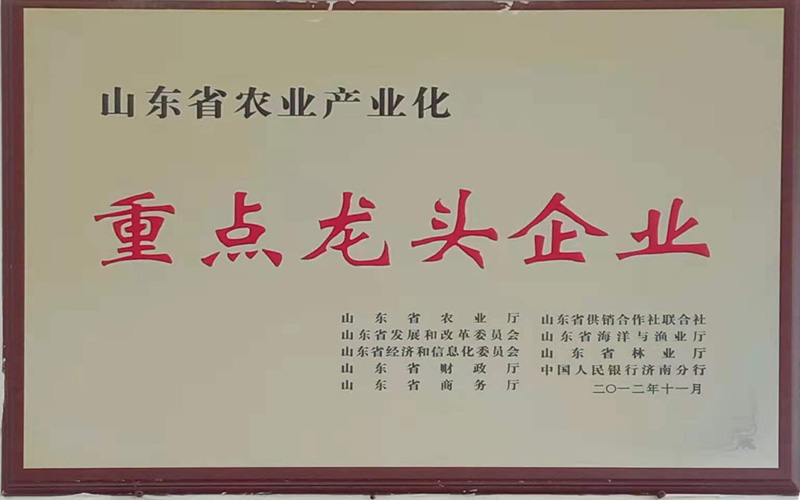 山东省农业产业化
重点龙头企业
山东省农业厅 山东省供销合作社联合社
山东省发展和改革委员会 山东省海洋与渔业厅
山东省经济和信息化委员会 山东省林业厅
山东省财政厅 中国人民银行济南分行
山东省商务厅 二〇一二年十一月